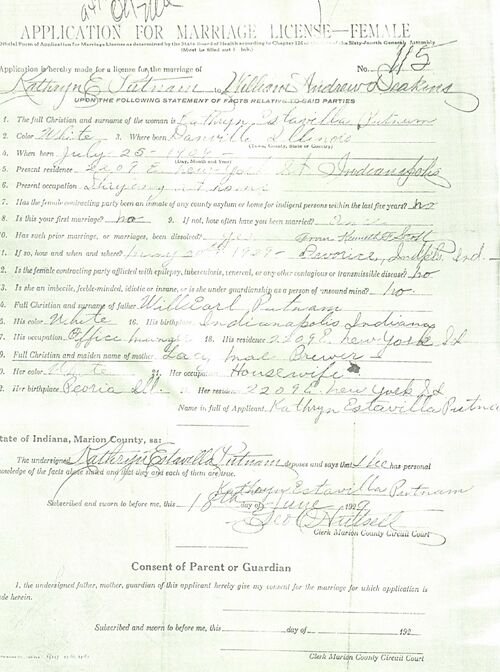 APPLICATION FOR MARRIAGE LICENSE—FEMALE
Official Form of Application for Marriage License as determined by the State Board of Health according to Chapter of the Sixty-fourth General Assembly
(Must be filled out in ink.)
Application is hereby made for a license for the marriage of No. 115
Kathryn E Putnam to William Andrew Deakins
UPON THE FOLLOWING STATEMENT OF FACTS RELATIVE TO SAID PARTIES
1. The full Christian and surname of the woman is Kathryn Estavilla Putnam
2. Color White 3. Where born Danville Illinois
(Town, County, State or Country)
4. When born July 25
(Day, Month and Year)
5. Present residence 2209 E New York St Indianapolis
6. Present occupation
7. Has the female contracting party been an inmate of any county asylum or home for indigent persons within the last five years? No
8. Is this your first marriage? no 9. If not, how often have you been married? once
10. Has such prior marriage, or marriages, been dissolved? yes
1. If so, how and when and where? 1929 Divorce, Indpls Ind.
2. Is the female contracting party afflicted with epilepsy, tuberculosis, venereal, or any other contagious or transmissible disease? No
3. Is she an imbecile, feeble-minded, idiotic or insane, or is she under guardianship as a person of unsound mind? No.
4. Full Christian and surname of father Will Earl Putnam
5. His color White 16. His birthplace Indianapolis Indiana
7. His occupation Office manager 18. His residence 2209 E New York St
9. Full Christian and maiden name of mother Mae Brewer
0. Her color White 21. Her occupation Housewife
2. Her birthplace Peoria Ill. Her residence 2209 E New York St
Name in full of Applicant. Kathryn Estavilla Putnam
State of Indiana, Marion County, ss:
The undersigned Kathryn Estavilla Putnam deposes and says that she has personal
knowledge of the facts above stated and that they and each of them are true.
Kathryn Estavilla Putnam
Subscribed and sworn to before me, this day of June 1929
Clerk Marion County Circuit Court
Consent of Parent or Guardian
I, the undersigned father, mother, guardian of this applicant hereby give my consent for the marriage for which application is
made herein.
Subscribed and sworn to before me, this day of 192
Clerk Marion County Circuit Court